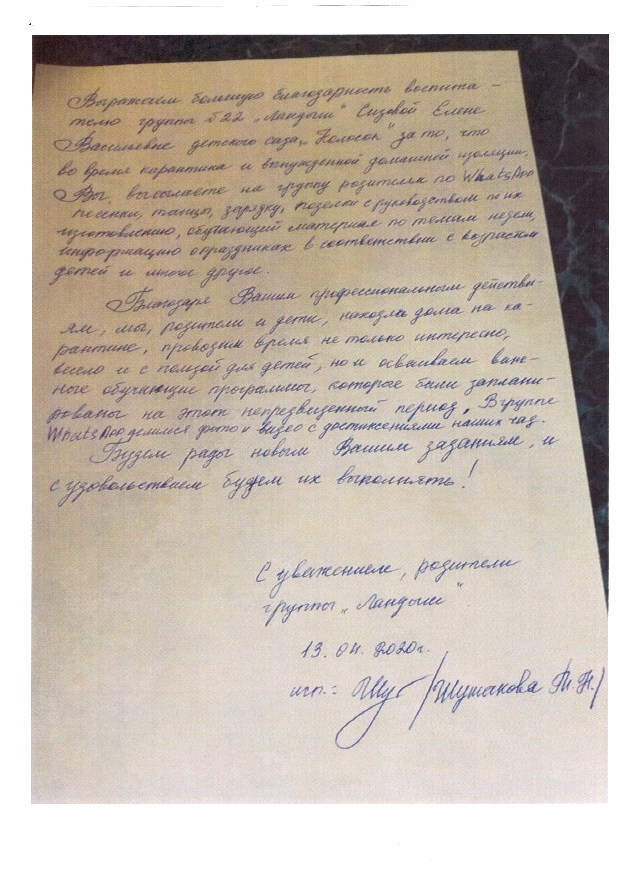 Выражаем большую благодарность воспита-
телю группы №22 "Ландыш" Сизовой Елене
Васильевне детского сада "Колосок" за то, что
во время карантина и вынужденной домашней изоляции,
Вы высылаете на группу родителям по WhatsApp
песенки, танцы, зарядку, поделки с руководством по их
изготовлению, обучающий материал по темам недели,
информацию о праздниках в соответствии с возрастом
детей и многое другое.
Благодаря Вашим профессиональным действи-
ям, мы, родители и дети, находясь дома на ка-
рантине, проводим время не только интересно,
весело и с пользой для детей, но и осваиваем важ-
ные обучающие программы, которые были заплани-
рованы на этот непредвиденный период. В группе
WhatsApp делимся фото и видео с достижениями наших чад.
Будем рады новым Вашим заданиям, и
с удовольствием будем их выполнять!
С уважением, родители
группы "Ландыш"
13.04.2020г.
исп.: /Шушакова Т.Н./